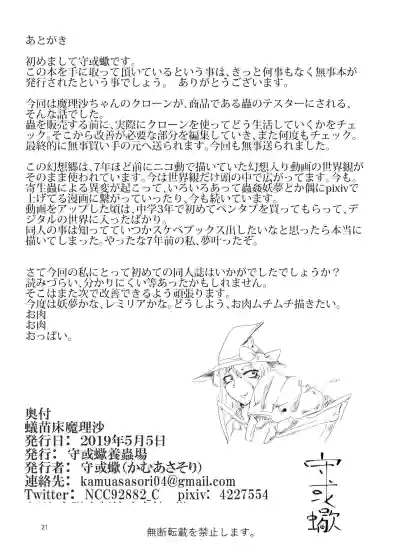 あとがき
初めまして守或蠍です。
この本を手に取って頂いているという事は、きっと何事もなく無事本が
発行されたという事でしょう。　ありがとうございます。
今回は魔理沙ちゃんのクローンが、商品である蟲のテスターにされる、
そんな話でした。
蟲を販売する前に、実際にクローンを使ってどう生活していくかをチェッ
ク。そこから改善が必要な部分を編集していき、また何度もチェック。
最終的に無事買い手の元へ送られます。今回も無事送られました。
この幻想郷は、7年ほど前にニコ動で描いていた幻想入り動画の世界観が
そのまま使われています。今は世界観だけ頭の中で広がってます。今も。
寄生蟲による異変が起こって、いろいろあって蟲姦妖夢とか偶にpixivで
上げてる漫画に繋がっていったり、今も続いています。
動画をアップした頃は、中学3年で初めてペンタブを買ってもらって、デ
ジタルの世界に入ったばかり。
同人の事は知っていていつかスケベブックス出したいなと思ったら本当に
描いてしまった。やったな7年前の私、夢叶ったぞ。
さて今回の私にとって初めての同人誌はいかがでしたでしょうか？
読みづらい、分かりにくい等あったかもしれません。
そこはまた次で改善できるよう頑張ります。
今度は妖夢かな、レミリアかな。どうしよう、お肉ムチムチ描きたい。
お肉
お肉
おっぱい。
奥付
蟻苗床魔理沙
発行日： 2019年5月5日
発行： 守或蠍養蟲場
発行者： 守或蠍（かむあさそり）
連絡先： kamuasasori04@gmail.com
Twitter： NCC92882_C　pixiv： 4227554
守或蠍
21
無断転載を禁止します。